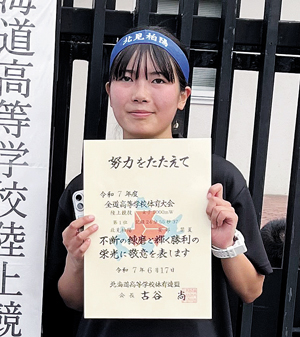 海道高等学校陸上競
北見柏陽
努力をたたえて
令和7年度
全道高等学校体育大会
陸上競技
不断の錬磨と輝く勝利の
栄光に敬意を表します
令和7年6月17日
北海道高等学校体育連盟
会長 古谷 尚